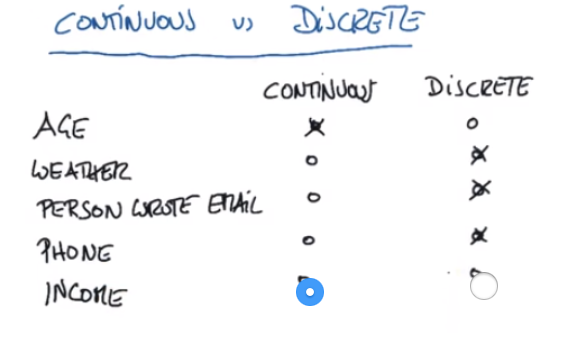 CONTINUOUS vs DISCRETE
CONTINUOUS DISCRETE
AGE
WEATHER
PERSON WROTE EMAIL
PHONE
INCOME